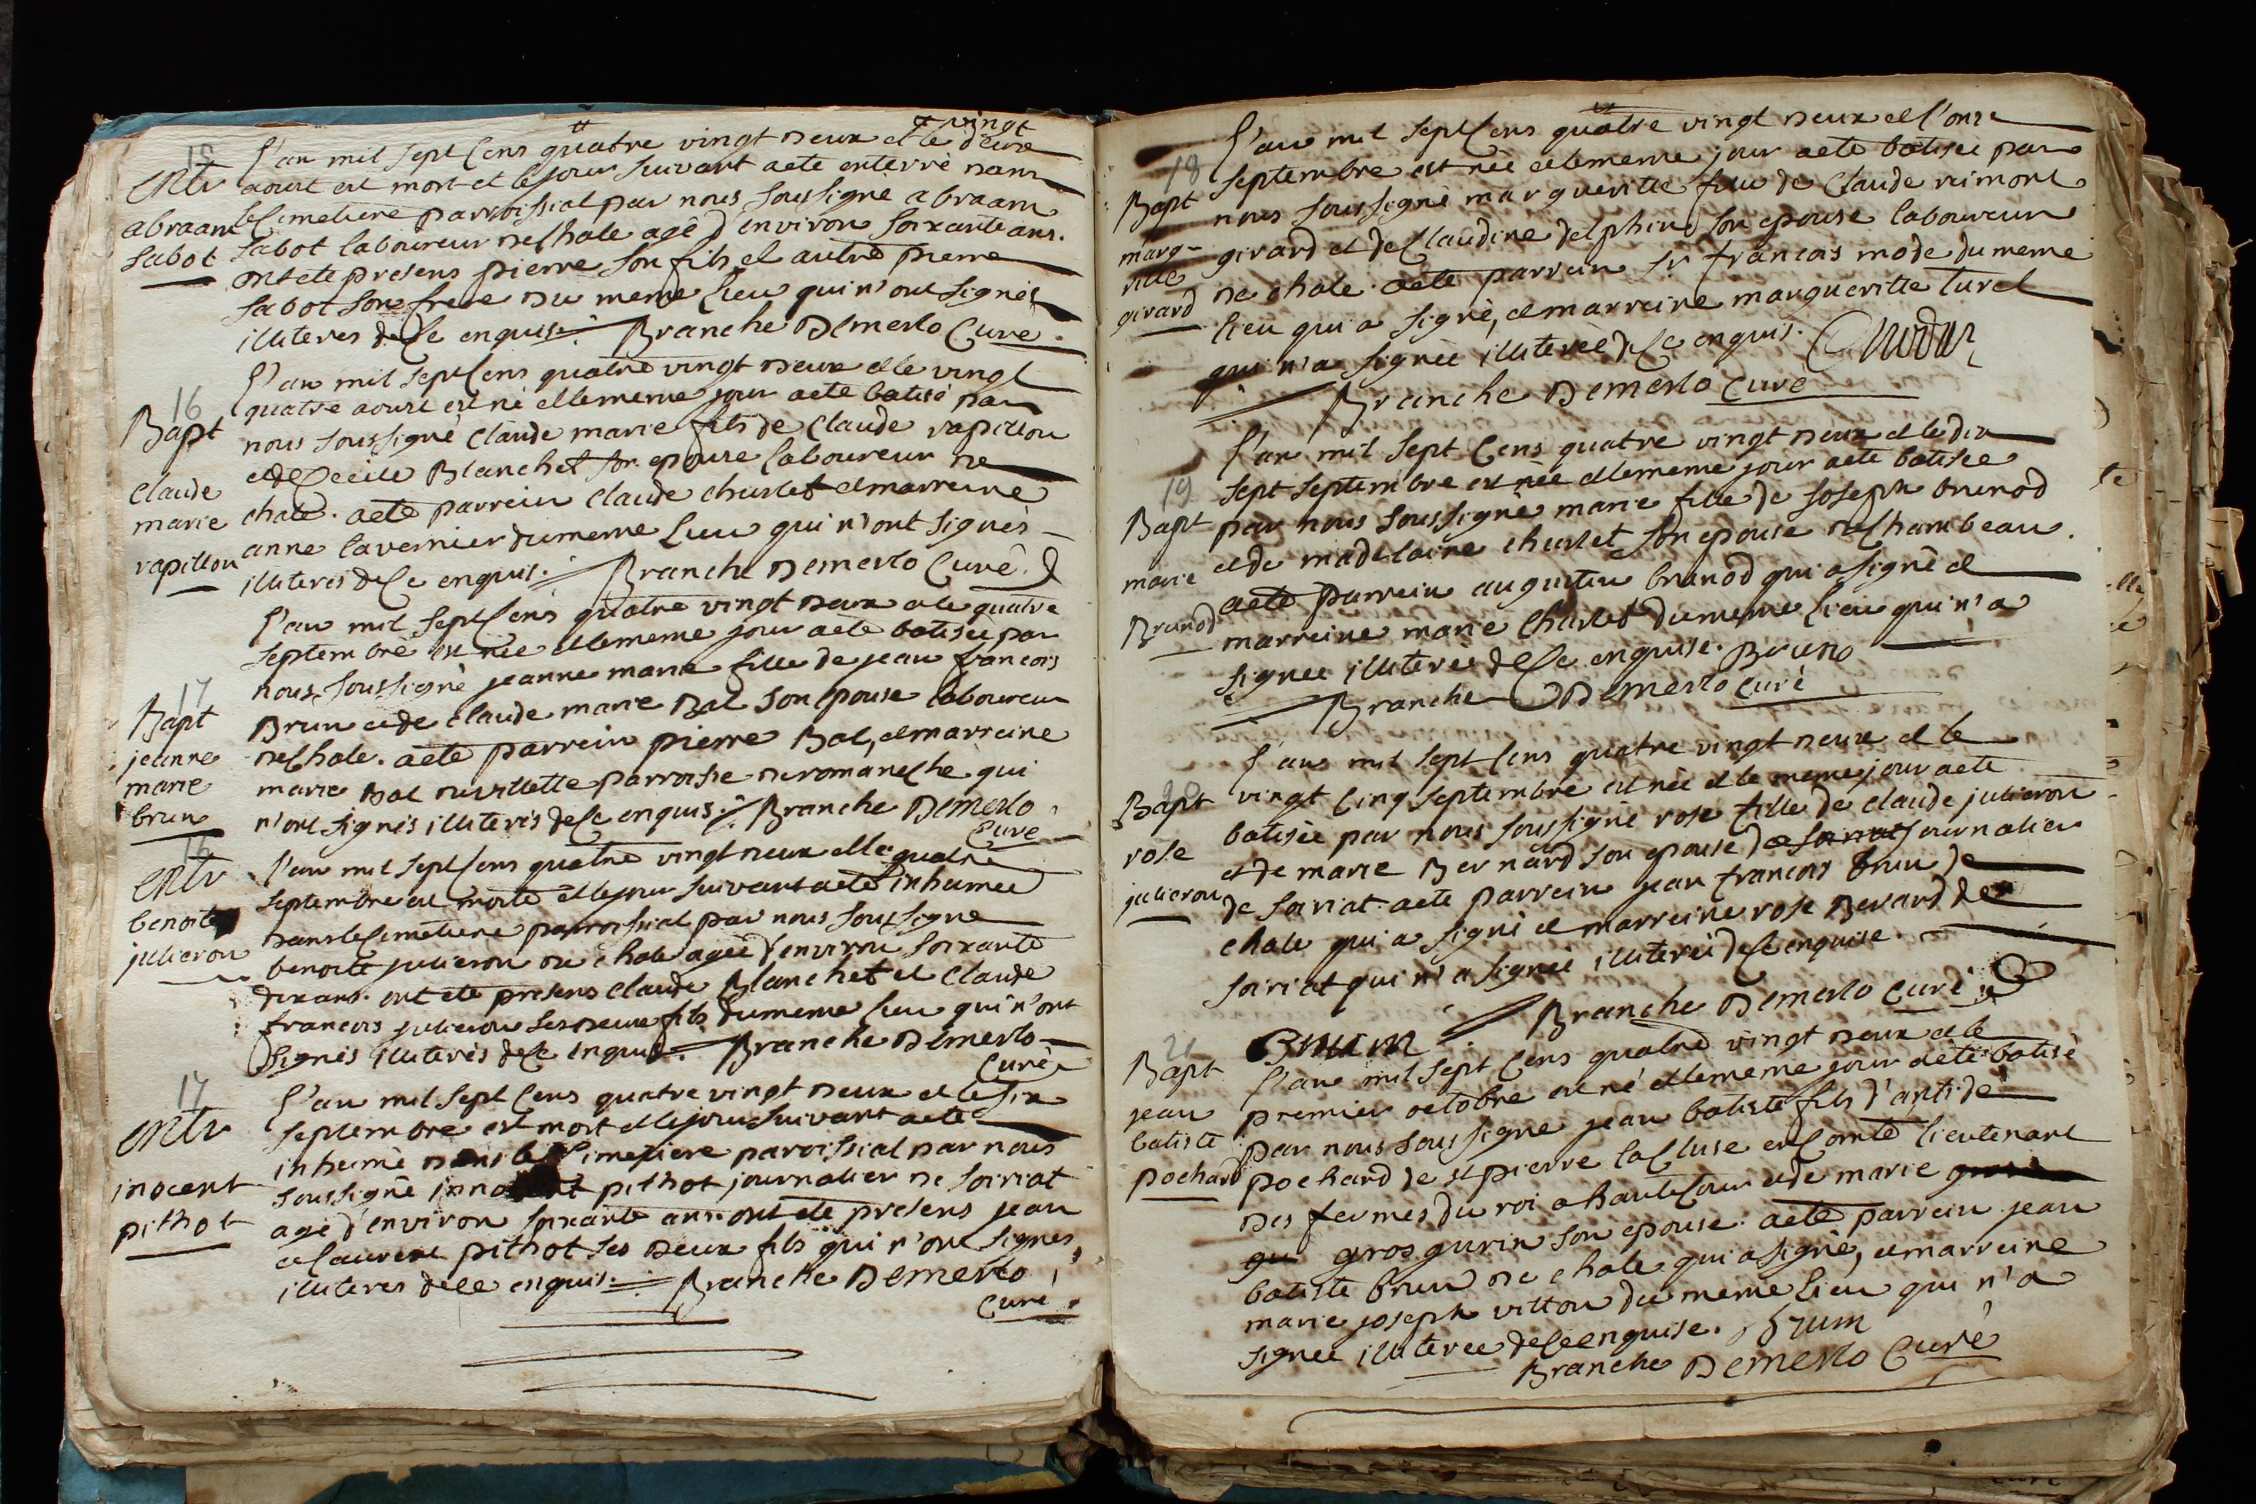 15
Entr
abraam
Sabot
L'an mil sept Cens quatre vingt deux et le vingt deux
aoust est mort et le jour suivant a eté enterré dans
le Cimetiere parroissial par nous soussigné abraam
Sabot laboureur de Chale agé d'environ soixante ans.
ont eté presens pierre son fils et autre pierre
Sabot son frere du meme lieu qui n'ont signés
illiteres de Ce enquis. Branche Demerlo Curé.
16
Bapt
Claude
marie
rapillon
L'an mil sept Cens quatre vingt deux et le vingt
quatre aoust est né et le meme jour a eté batisé par
nous soussigné Claude marie fils de Claude rapillon
et de Cecile Blanchet son epouse laboureur de
chale. a eté parrein claude charlet et marreine
anne lavernier du meme lieu qui n'ont signés
illiteres de Ce enquis. Branche Demerlo Curé.
17
Bapt
jeanne
marie
brun
L'an mil sept Cens quatre vingt deux et le quatre
septembre est née et le meme jour a eté batisée par
nous soussigné jeanne marie fille de jean francois
Brun et de claude marie Bal son epouse laboureur
de Chale. a eté parrein pierre Bal, et marreine
marie Bal de villette parroisse de romaneche qui
n'ont signés illiterés de Ce enquis. Branche Demerlo
Curé
16
Entr
benoite
julieron
L'an mil sept Cens quatre vingt deux et le quatre
septembre est morte et le jour suivant a eté inhumée
dans le Cimetiere parroissial par nous soussigné
benoite julieron de chale agée d'environ soixante
dix ans. ont eté presens Claude Blanchet et Claude
francois julieron ses deux fils du meme lieu qui n'ont
signés illiterés de Ce enquis. Branche Demerlo
Curé
17
Entr
inocent
pithot
L'an mil sept Cens quatre vingt deux et le six
septembre est mort et le jour suivant a eté
inhumé dans le Cimetiere paroissial par nous
soussigné innocent pithot journalier de soiriat
agé d'environ soixante ans. ont eté presens jean
et laurent pithot ses deux fils qui n'ont signés
illiteres de Ce enquis. Branche Demerlo
Curé
18
Bapt
marg-
ritte
girard
L'an mil sept Cens quatre vingt deux et l'onze
septembre est née et le meme jour a eté batisée par
nous soussigné margueritte fille de Claude rimont
girard et de Claudine delphin son epouse laboureur
de chale. a eté parrein sr francois mode du meme
lieu qui a signé, et marreine margueritte turel
qui n'a signée illiterée de Ce enquis.
Branche Demerlo Curé
19
Bapt
marie
Brunod
L'an mil sept Cens quatre vingt deux et le dix
sept septembre est née et le meme jour a eté batisée
par nous soussigné marie fille de joseph brunod
et de madelaine charlet son epouse de Chambeau.
a eté parrein augustin brunod qui a signé et
marreine marie Charlet du meme lieu qui n'a
signée illiterée de Ce enquise. Bruno
Branche Demerlo Curé
20
Bapt
rose
julieron
L'an mil sept Cens quatre vingt deux et le
vingt Cinq septembre est née et le meme jour a eté
batisée par nous soussigné rose fille de claude julieron
et de marie Bernard son epouse de soiriat journalier
de soiriat. a eté parrein jean francois brun de
chale qui a signé et marreine rose Berard de
soiriat qui n'a signée illiterée de Ce enquise.
Branche Demerlo Curé
Brum
21
Bapt
jean
batiste
pochard
L'an mil sept Cens quatre vingt deux et le
premier octobre est né et le meme jour a eté batisé
par nous soussigné jean batiste fils d'antide
pochard de st pierre la Cluse en Comté lieutenant
des fermes du roi a hauteCour et de marie gros
gu gros gurin son epouse. a eté parrein jean
batiste brun de chale qui a signé, et marreine
marie joseph vitton du meme lieu qui n'a
signée illiterée de Ce enquise. Brum
Branche Demerlo Curé